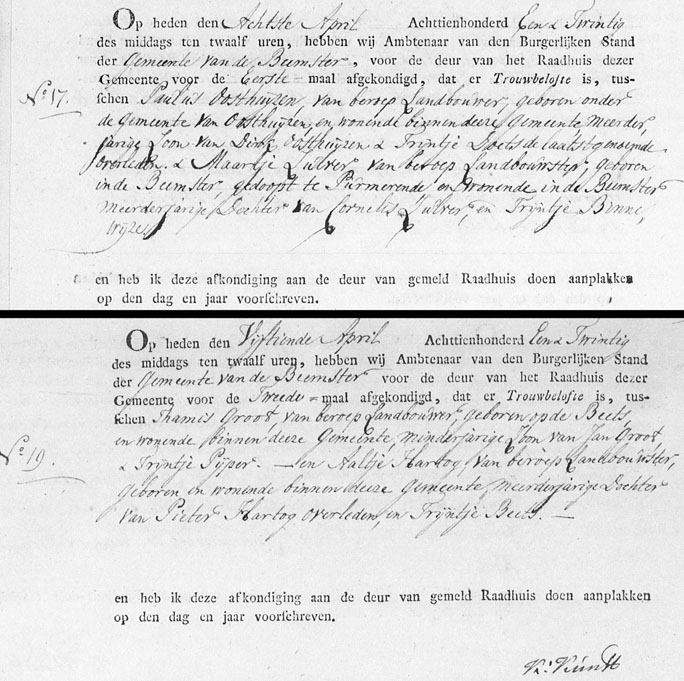 Op heden den Achtste April Achttienhonderd Een & Twintig
des middags ten twaalf uren, hebben wij Ambtenaar van den Burgerlijken Stand
der Gemeente van de Beemster, voor de deur van het Raadhuis dezer
Gemeente voor de Eerste maal afgekondigd, dat er Trouwbelofte is, tus-
No. 17. schen Paulus Oosthuyzen, van beroep Landbouwer, geboren onder
de Gemeente van Oosthuyzen, en wonende binnen deeze Gemeente, meerder,
jarige Zoon van Dirk Oosthuyzen & Tryntje Doets de laatstgenoemde
overleden. & Maartje Luttver, van beroep Landbouwster, geboren
in de Beemster, gedoopt te Purmerende en Wonende in de Beemster
meerderjarige Dochter van Cornelis Luttver, en Tryntje Binne,
wyzes
en heb ik deze afkondiging aan de deur van gemeld Raadhuis doen aanplakken
op den dag en jaar voorschreven.
Op heden den Vijftiende April Achttienhonderd Een & Twintig
des middags ten twaalf uren, hebben wij Ambtenaar van den Burgerlijken Stand
der Gemeente van de Beemster voor de deur van het Raadhuis dezer
Gemeente voor de Tweede = maal afgekondigd, dat er Trouwbelofte is, tus-
schen Thamis Groot, van beroep Landbouwer, geboren op de Beets,
en wonende binnen deeze Gemeente, minderjarige Zoon van Jan Groot
No. 19. & Tryntje Pyper. — en Aaltje Hartog, van beroep Landbouwster,
geboren en wonende binnen deeze Gemeente, meerderjarige Dochter
van Pieter Hartog overleden, en Tryntje Beets. —
en heb ik deze afkondiging aan de deur van gemeld Raadhuis doen aanplakken
op den dag en jaar voorschreven.